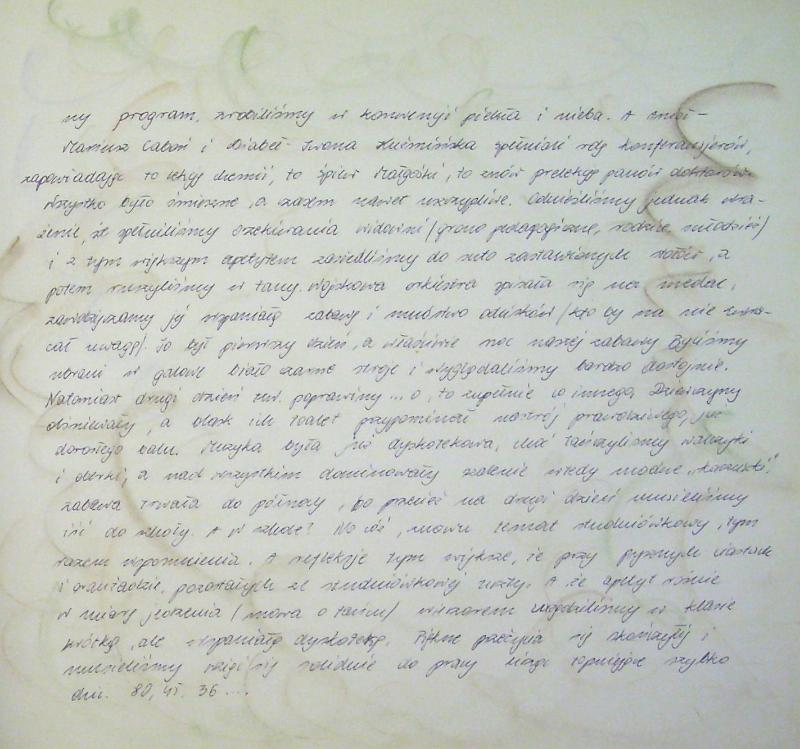 ny program zrobiliśmy w konwencji piekła i nieba. A anioł -
Mariusz Caboń i Diabeł - Iwona Kuźmińska spełniali rolę konferansjerów,
zapowiadając to lekcję chemii, to śpiew Małgośki, to znów prelekcję panów doktorów.
Wszystko było śmieszne, a czasem nawet uszczypliwe. Odnieśliśmy jednak wra-
żenie, że spełniliśmy oczekiwania widowni (grono pedagogiczne, rodzice, młodzież)
i z tym większym apetytem zasiedliśmy do suto zastawionych stołów, a
potem ruszyliśmy w tany. Wojskowa orkiestra spisała się na medal,
zawdzięczamy jej wspaniałą zabawę i mnóstwo odcisków (kto by na nie zwra-
cał uwagę). To był pierwszy dzień, a właściwie noc naszej zabawy. Byliśmy
ubrani w galowe biało czarne stroje i wyglądaliśmy bardzo dostojnie.
Natomiast drugi dzień zw. poprawiny... o, to zupełnie co innego. Dziewczyny
olśniewały, a blask ich toalet przypominał nastrój prawdziwego, już
dorosłego balu. Muzyka była już dyskotekowa, choć tańczyliśmy walczyki
i oberki, a nad wszystkim dominowały szalenie wtedy modne "kaczuszki".
Zabawa trwała do północy, bo przecież na drugi dzień musieliśmy
iść do szkoły. A w szkole? No cóż, znowu temat studniówkowy, tym
razem wspomnienia. A refleksje tym większe, że przy pysznych ciastach
i oranżadzie, pozostałych ze studniówkowej uczty. A że apetyt rośnie
w miarę jedzenia (mowa o tańcu) wieczorem urządziliśmy w klasie
krótką, ale wspaniałą dyskotekę. Piękne przeżycia się skończyły i
musieliśmy wziąć się solidnie do pracy licząc topniejące szybko
dni. 80, 45, 36 ....